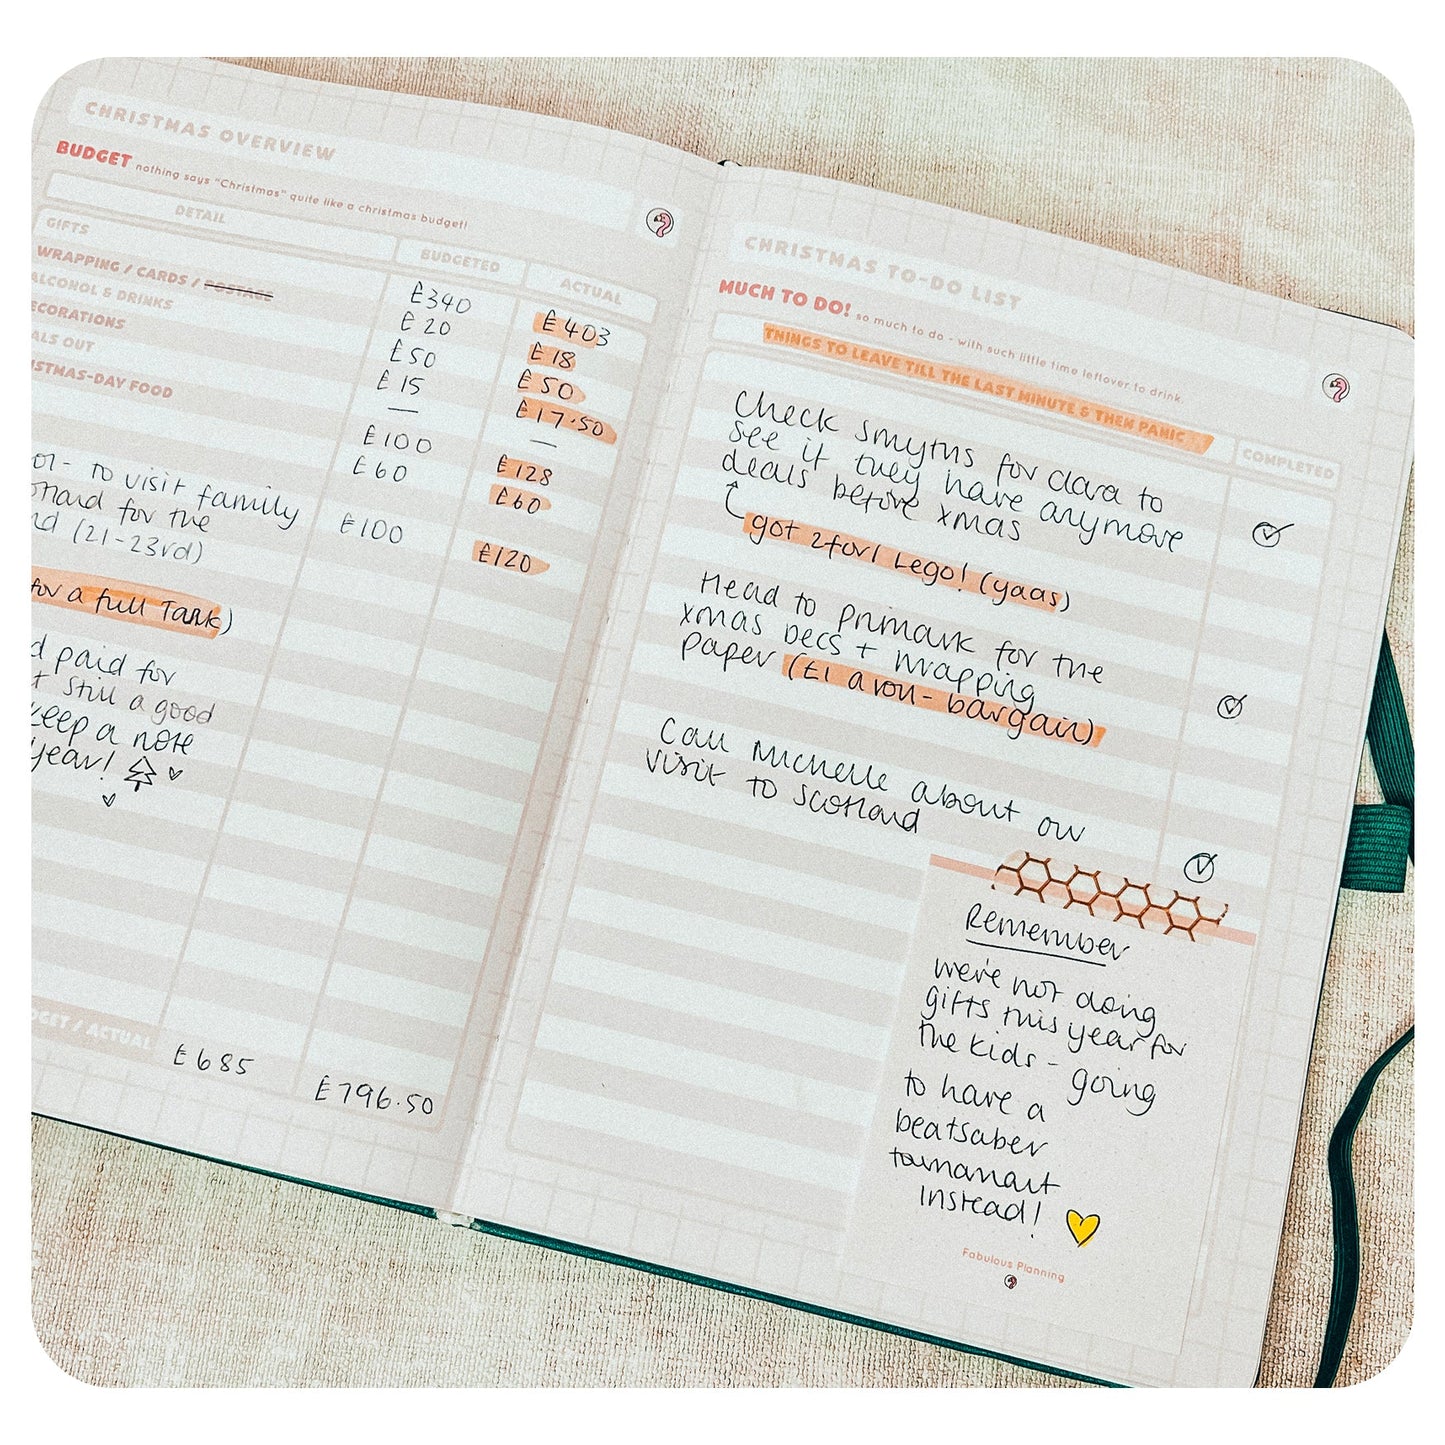 CHRISTMAS OVERVIEW
BUDGET nothing says "Christmas" quite like a christmas budget!
DETAIL BUDGETED ACTUAL
GIFTS £340 £403
WRAPPING / CARDS / POSTAGE £20 £18
ALCONOL & DRINKS £50 £50
ECORATIONS £15 £17.50
ALS OUT — —
ISTMAS-DAY FOOD £100 £128
£60 £60
to visit family
for the £100 £120
(21-23rd)
for a full Tank)
d paid for
still a good
keep a note
year!
DGET / ACTUAL £685 £796.50
CHRISTMAS TO-DO LIST
MUCH TO DO! so much to do - with such little time leftover to drink
THINGS TO LEAVE TILL THE LAST MINUTE & THEN PANIC COMPLETED
Check Smyths for Clara to
see if they have anymore
deals before xmas
got 2for1 Lego! (yaas)
Head to Primark for the
xmas Decs + wrapping
paper (£1 a roll - bargain)
Call Michelle about our
visit to Scotland
Remember
we're not doing
gifts this year for
the kids - going
to have a
beatsaber
tournamant
instead!
Fabulous Planning